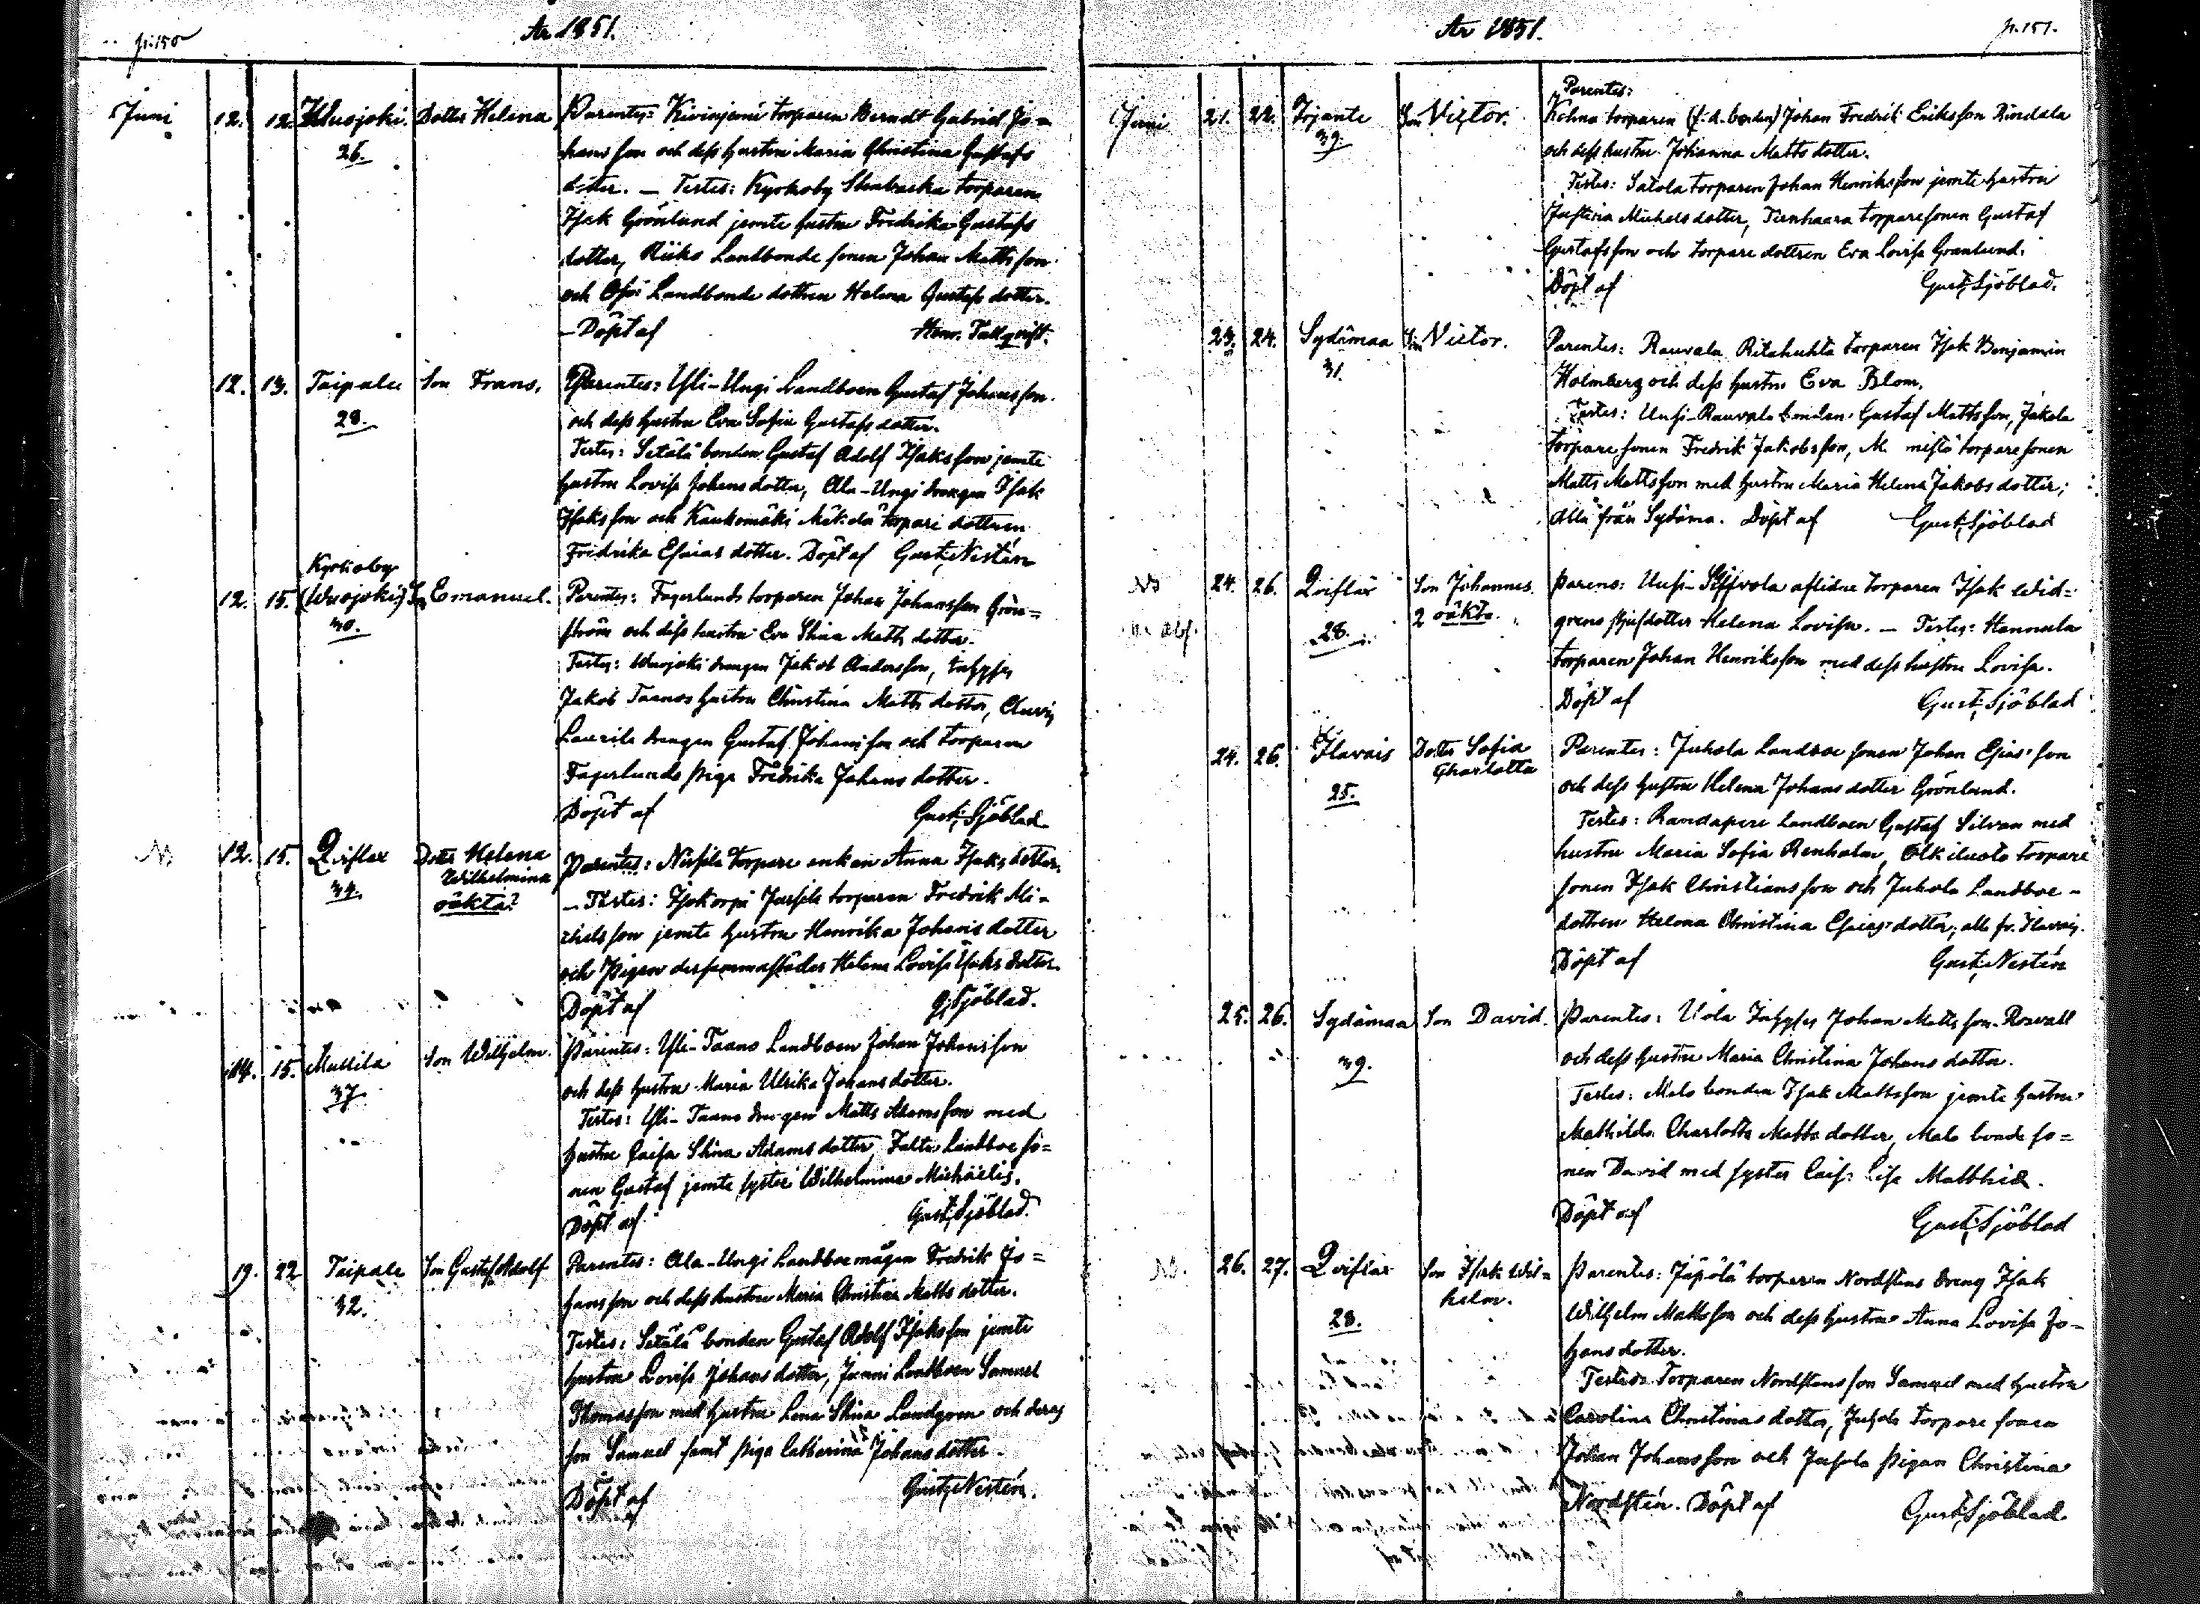 p. 150
År 1851.
Juni 12. 12. Wuojoki. Dotter Helena Parentes: Kivinjemi torparen Berndt Gabriel Jo-
26. hans son och dess hustru Maria Christina Gustafs
dotter. — Testes: Kyrkoby Stenbacka torparen
Isak Grönlund jemte hustru Fredrika Gustafs
dotter, Landbonde sonen Johan Matts son
och Landbonde dottren Helena Gustafs dotter.
— Döpt af Henr. Tallqvist.
12. 13. Taipale Son Frans. Parentes: Yli-Ungi Landboen Gustaf Johansson
28. och dess hustru Eva Sofia Gustafs dotter.
Testes: Setälä bonden Gustaf Adolf Isaksson jemte
hustru Lovisa Johans dotter, Ala-Ungi drengen Isak
Isaksson och Kaukomäki Mäkelä torpare dottren
Fridrika Esaias dotter. Döpt af Gust. Nestén
Kyrkoby
12. 15. (Wuojoki) Son Emanuel. Parentes: Fagerlunds torparen Johan Johansson Grön-
30. ström och dess hustru Eva Stina Matts dotter.
Testes: Wuojoki drengen Jakob Andersson, Inhyses
Jakob Taanos hustru Christina Matts dotter,
Laurila drengen Gustaf Johansson och torparen
Fagerlunds piga Fredrika Johans dotter.
Döpt af Gust. Sjöblad
12. 15. Qviflax Dotter Helena
Wilhelmina
34. oäkta? Parentes: Nissilä torpare enkan Anna Isaks dotter.
— Testes: Isokorpi Jussila torparen Fredrik Mi-
chelsson jemte hustru Henrika Johans dotter
och Pigan dersammastädes Helena Lovisa Isaks dotter.
Döpt af G. Sjöblad.
14. 15. Mullila Son Wilhelm. Parentes: Yli-Taano Landboen Johan Johansson
37. och dess hustru Maria Ulrika Johans dotter.
Testes: Yli-Taano drengen Matts Adamsson med
hustru Caisa Stina Adams dotter, Landboe so-
nen Gustaf jemte syster Wilhelmina Michaelis.
Döpt af Gust. Sjöblad.
19. 22 Taipale Son Gustaf Adolf Parentes: Ala-Ungi Landboe mågen Fredrik Jo-
32. hansson och dess hustru Maria Christina Matts dotter.
Testes: Setälä bonden Gustaf Adolf Isaksson jemte
hustru Lovisa Johans dotter, Landboen Samuel
Thomasson med hustru Lena Stina Lundgren och deras
son Samuel samt piga Catharina Johans dotter.
Döpt af Gust. Nestén.
År 1851.
p. 151.
Parentes:
Juni 21. 22. Trjante Son Victor. Kelma torparen (f.d. bonden) Johan Fredrik Eriksson Rindala
39. och dess hustru Johanna Matts dotter.
Testes: Satola torparen Johan Henriksson jemte hustru
Justina Michels dotter, Tienhaara torparesonen Gustaf
Gustafsson och torpare dottren Eva Lovisa Granlund.
Döpt af Gust. Sjöblad.
23. 24. Sydämaa Son Victor. Parentes: Rauvala Ritahuhta torparen Isak Benjamin
31. Holmberg och dess hustru Eva Blom.
Testes: Uusi-Rauvala bonden Gustaf Mattsson, Jakola
torpare sonen Fredrik Jakobsson, torpare sonen
Matts Mattsson med hustru Maria Helena Jakobs dotter;
alla från Sydäma. Döpt af Gust. Sjöblad
24. 26. Qviflax Son Johannes. Parens: Uusi- aflidne torparen Isak Wid-
28. 2 oäkta. grens styfdotter Helena Lovisa. — Testes: Hannula
torparen Johan Henriksson med dess hustru Lovisa.
Döpt af Gust. Sjöblad
24. 26. Ilavais Dotter Sofia
Charlotta Parentes: Juhola Landboe sonen Johan Esiasson
25. och dess hustru Helena Johans dotter Grönlund.
Testes: Landboen Gustaf Silvan med
hustru Maria Sofia Renholm, Olkiluoto torpare
sonen Isak Christiansson och Juhola Landboe-
dottren Helena Christina Esaias dotter, alla fr. Ilavais.
Döpt af Gust. Nestén
25. 26. Sydämaa Son David. Parentes: Uola Inhyses Johan Mattsson Roswall
39. och dess hustru Maria Christina Johans dotter.
Testes: Malo bonden Isak Mattsson jemte hustru
Mathilda Charlotta Matts dotter, Malo bonde so-
nen David med syster Caisa Lisa Matthiæ.
Döpt af Gust. Sjöblad
26. 27. Qviflax Son Isak Wil-
helm. Parentes: Jäpölä torparen Nordstens dreng Isak
28. Wilhelm Mattsson och dess hustru Anna Lovisa Jo-
hans dotter.
Testes: Torparen Nordstens son Samuel med hustru
Carolina Christinas dotter, torpare sonen
Johan Johansson och pigan Christina
Nordstén. Döpt af Gust. Sjöblad